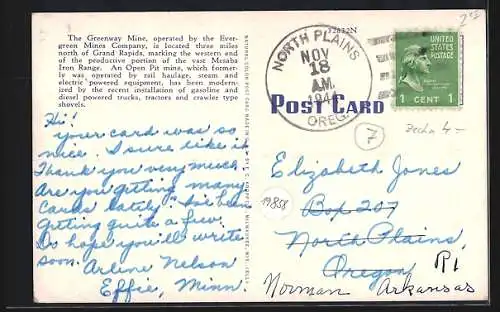 The Greenway Mine, operated by the Ever-
green Mines Company, is located three miles
north of Grand Rapids, marking the western end
of the productive portion of the vast Mesaba
Iron Range. An Open Pit mine, which former-
ly was operated by rail haulage, steam and
electric powered equipment, has been modern-
ized by the recent installation of gasoline and
diesel powered trucks, tractors and crawler type
shovels.
Hi!
Your card was so
nice. I sure like it
Thank you very much.
Are you getting many
Cards lately? I've been
getting quite a few.
Do hope you'll write
soon. Arline Nelson
Effie, Minn.
NORTH PLAINS
NOV
18
AM
OREG.
UNITED STATES
POSTAGE
1 CENT 1
POST CARD
7
19858
Elizabeth Jones
Box 207
North Plains,
Oregon
R1
Norman Arkansas